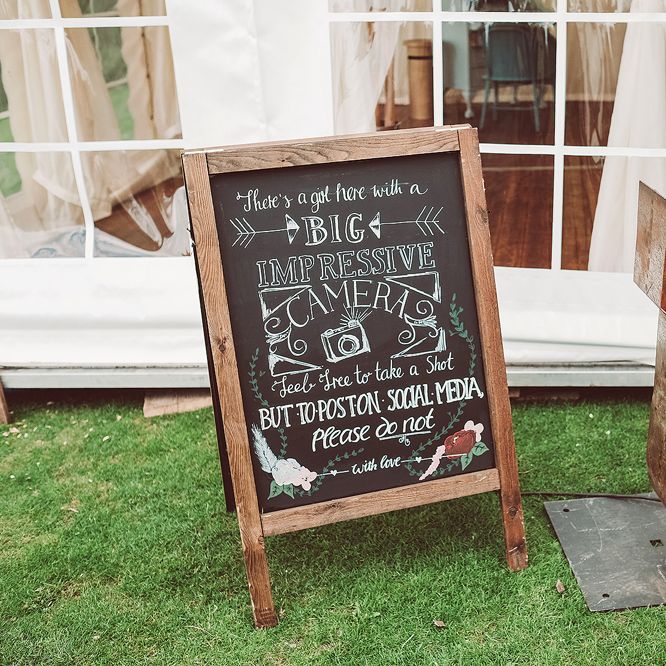 There's a girl here with a
BIG
IMPRESSIVE
CAMERA
Feel Free to take a Shot
BUT TO·POST·ON·SOCIAL·MEDIA,
Please do not
with love